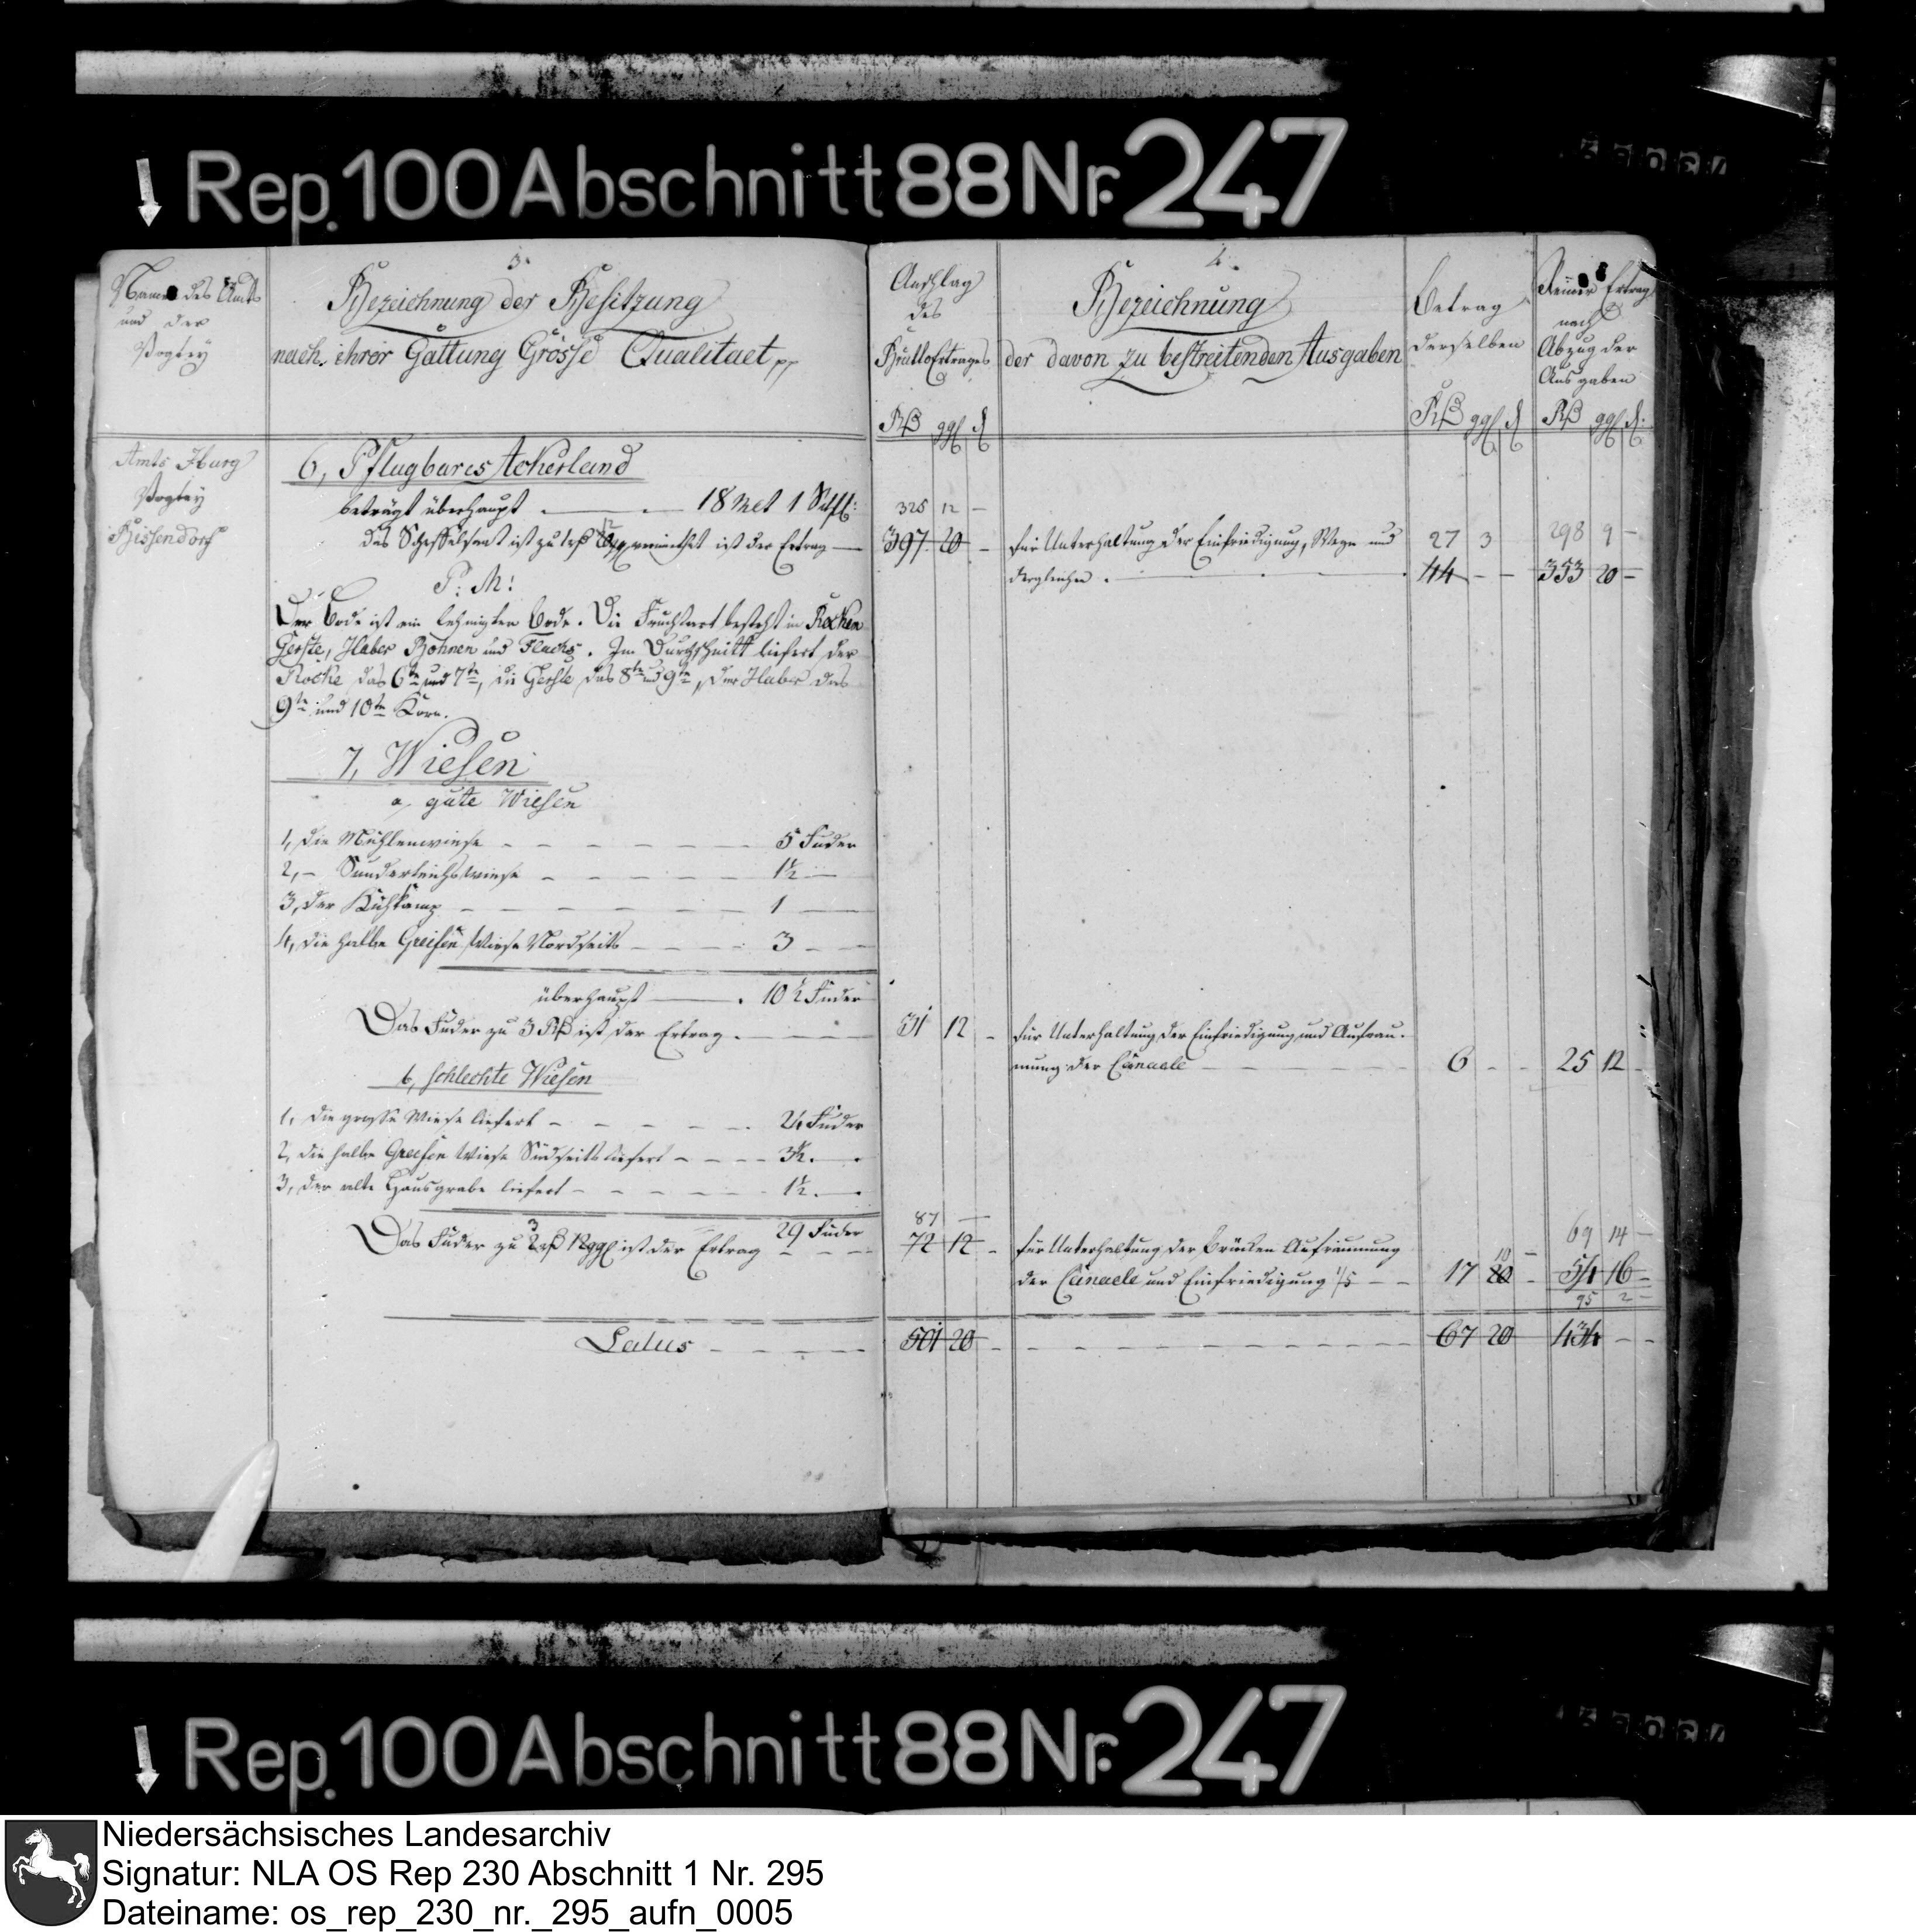 Rep. 100 Abschnitt 88 Nr. 247
Name des Amts
und der
Vogtey
3.
Bezeichnung der Besitzung
nach ihrer Gattung Grösse Qualitaet pp
Anschlag
des
Brutto Ertrages
4.
Bezeichnung
der davon zu bestreitenden Ausgaben
Betrag
derselben
Reiner Ertrag
nach
Abzug der
Ausgaben
Amts Iburg
Vogtey
Bissendorf
6, Pflugbares Ackerland
beträgt überhaupt 18 Mlt 1 Schfl: 325 12 –
das Scheffelsaat ist zu 1 rß 12 vermiethet ist der Ertrag 397 20 –
für Unterhaltung der Einfriedigung, Wege und 27 3 298 9 –
dergleichen 44 – – 353 20 –
P: M:
Der Bode ist ein lehmigter Bode. Die Fruchtart besteht in Rocken
Gerste, Haber Bohnen und Flachs. Im Durchschnitt liefert der
Rocke das 6te und 7te, die Gerste das 8te und 9te, der Haber das
9te und 10te Korn.
7, Wiesen
a, gute Wiesen
1, die Mühlenwiese 5 Fuder
2, – Sunderteichswiese 1½
3, der Kuhkamp 1
4, die halbe Greisen Wiese Nordseits 3
überhaupt 10½ Fuder
Das Fuder zu 3 Rß ist der Ertrag 31 12 –
für Unterhaltung der Einfriedigung und Aufräu-
mung der Canaele 6 – – 25 12 –
b, schlechte Wiesen
1, die grosse Wiese liefert 24 Fuder
2, die halbe Greisen Wiese Südseits liefert 3½
3, der alte Hausgrabe liefert 1½
29 Fuder
87 –
Das Fuder zu 3 2 rß 12 ggl ist der Ertrag 72 12 –
für Unterhaltung der Brücken Aufräumung 69 14 –
der Canaele und Einfriedigung 1/5 17 10 20 – 54 16 –
95 2 –
Latus 501 20 – 67 20 434 – –
Rep. 100 Abschnitt 88 Nr. 247
Niedersächsisches Landesarchiv
Signatur: NLA OS Rep 230 Abschnitt 1 Nr. 295
Dateiname: os_rep_230_nr._295_aufn_0005